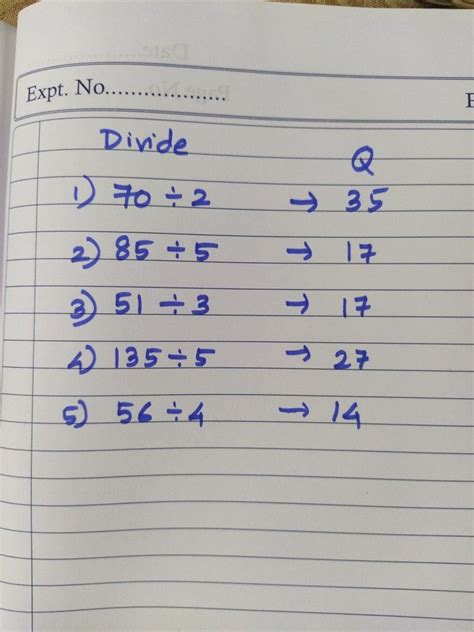 Expt. No...................
Divide
Q
1) 70 ÷ 2 → 35
2) 85 ÷ 5 → 17
3) 51 ÷ 3 → 17
4) 135 ÷ 5 → 27
5) 56 ÷ 4 → 14